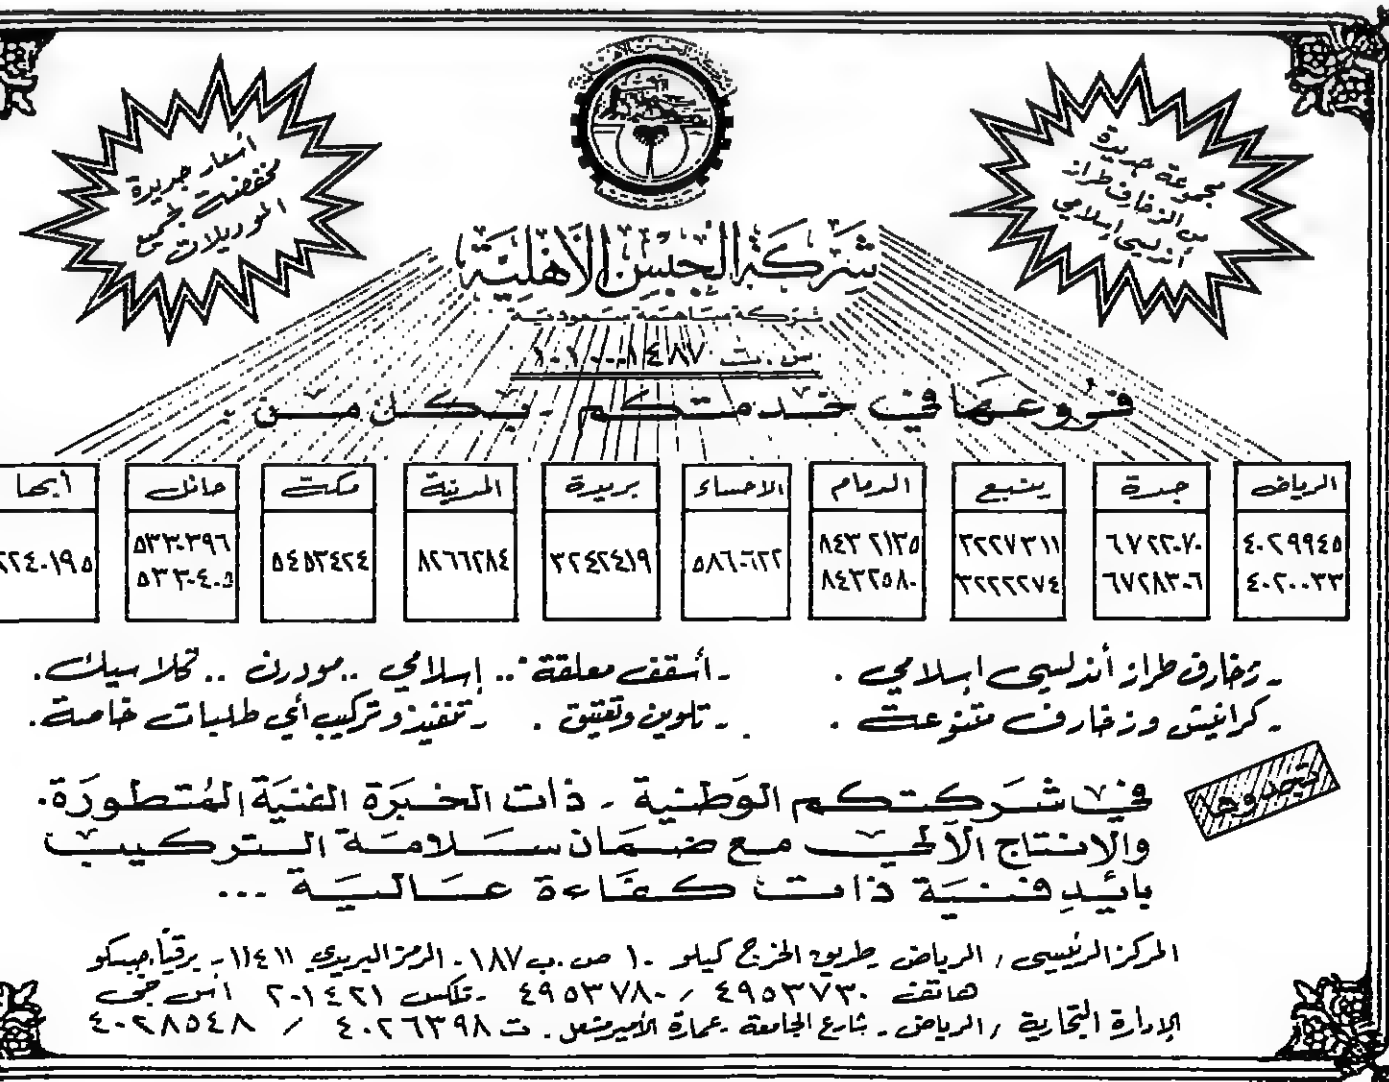 مجموعة جديدة
من الزخارف طراز
أندلسي إسلامي
أسعار جديدة
مخفضة لجميع
الموديلات
شركة الجبس الأهلية
شركة مساهمة سعودية
س.ت ١٤٨٧...١٠١٠
فروعها في خدمتكم - بكل من :
الرياض جدة ينبع الدمام الاحساء بريدة المدينة مكة حائل أبها
٤٠٢٩٩٤٥ ٦٧٢٢٠٧٠ ٣٢٢٧٣١١ ٨٤٣٢١٣٥ ٥٨٦٠٦٢٢ ٣٢٤٢٤١٩ ٨٢٦٦٢٨٤ ٥٤٥٣٤٢٤ ٥٣٣٠٣٩٦ ٢٢٤٠١٩٥
٤٠٢٠٠٣٣ ٦٧٢٨٣٠٦ ٣٢٢٢٢٧٤ ٨٤٣٢٥٨٠ ٥٣٣٠٤٠٥
- زخارف طراز أندلسي إسلامي . - أسقف معلقة .. إسلامي .. مودرن .. كلاسيك .
- كرانيش وزخارف متنوعة . - تلوين وتعتيق . - تنفيذ وتركيب أي طلبات خاصة .
تجدوها
في شركتكم الوطنية - ذات الخبرة الفنية المتطورة .
والانتاج الآلي مع ضمان سلامة التركيب
بأيدِ فنية ذات كفاءة عالية ...
المركز الرئيسي / الرياض طريق الخرج كيلو ١٠ ص.ب ١٨٧ - الرمز البريدي ١١٤١١ - برقياً جبسكو
هاتف ٤٩٥٣٧٣٠ / ٤٩٥٣٧٨٠ - تلكس ٢٠١٤٢١ اس جي
الإدارة التجارية / الرياض - شارع الجامعة - عمارة الأمير مشعل . ت ٤٠٢٦٣٩٨ / ٤٠٢٨٥٤٨